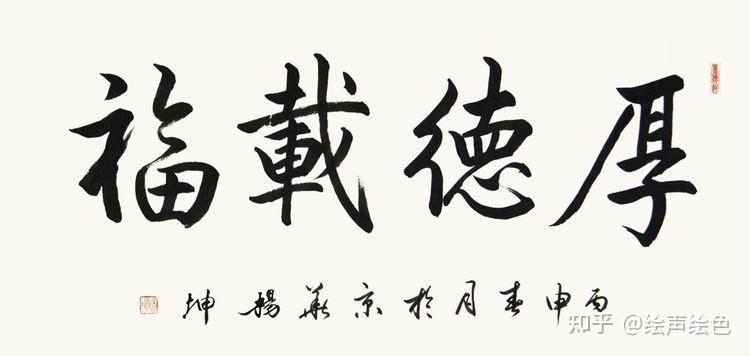 厚德載福
丙申春月於京華楊坤
知乎 @绘声绘色